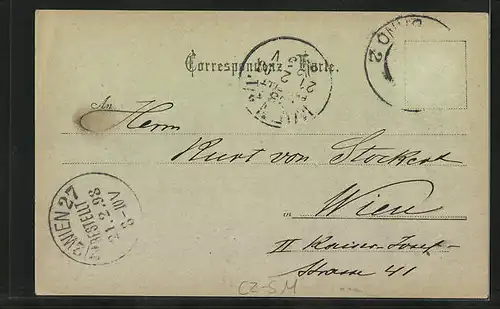 BRNO 2
Correspondenz-Karte.
An
Herrn
Kurt von Stockert
in Wien
II Kaiser-Josef-
Strasse 41
2 WIEN 27
BESTELLT
21.2.98
8-10V
CZ-SM